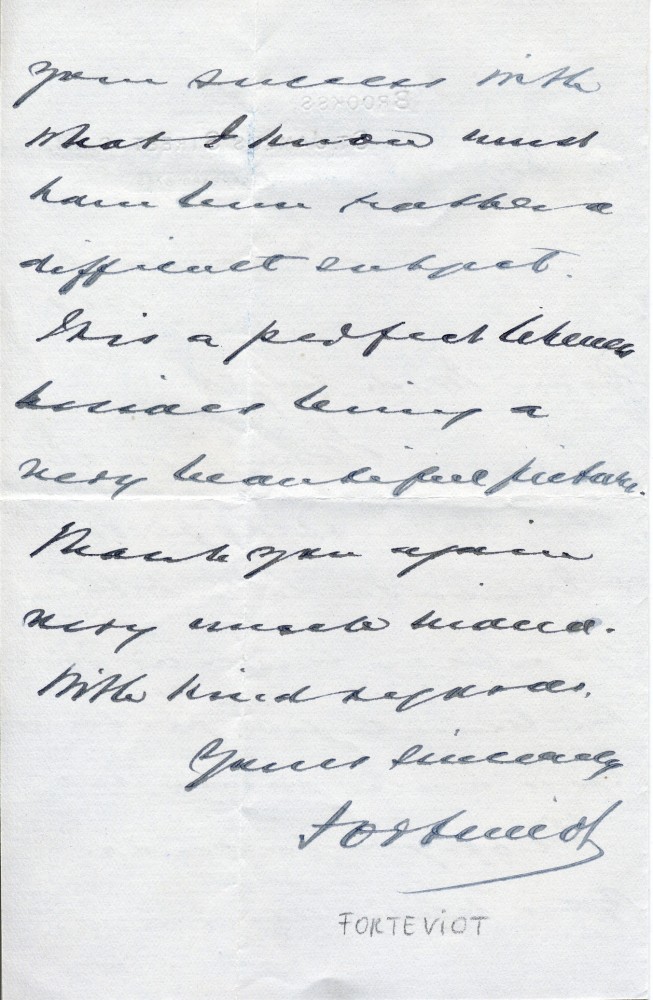 your success with
what I know must
have been rather a
difficult subject.
It is a perfect likeness
besides being a
very beautiful picture.
Thank you again
very much indeed.
With kind regards.
Yours sincerely
Forteviot
FORTEVIOT
BROOKS'S.
ST JAMES'S STREET